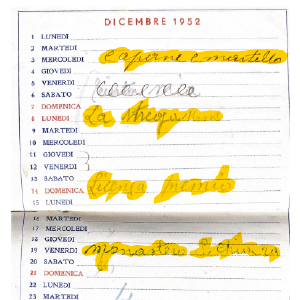 DICEMBRE 1952
1 LUNEDI
2 MARTEDI
3 MERCOLEDI capane e martello
4 GIOVEDI
5 VENERDI
6 SABATO
7 DOMENICA La strega
8 LUNEDI
9 MARTEDI
10 MERCOLEDI
11 GIOVEDI
12 VENERDI
13 SABATO
14 DOMENICA Licenza premio
15 LUNEDI
16 MARTEDI
17 MERCOLEDI
18 GIOVEDI
19 VENERDI monastero
20 SABATO
21 DOMENICA
22 LUNEDI
23 MARTEDI